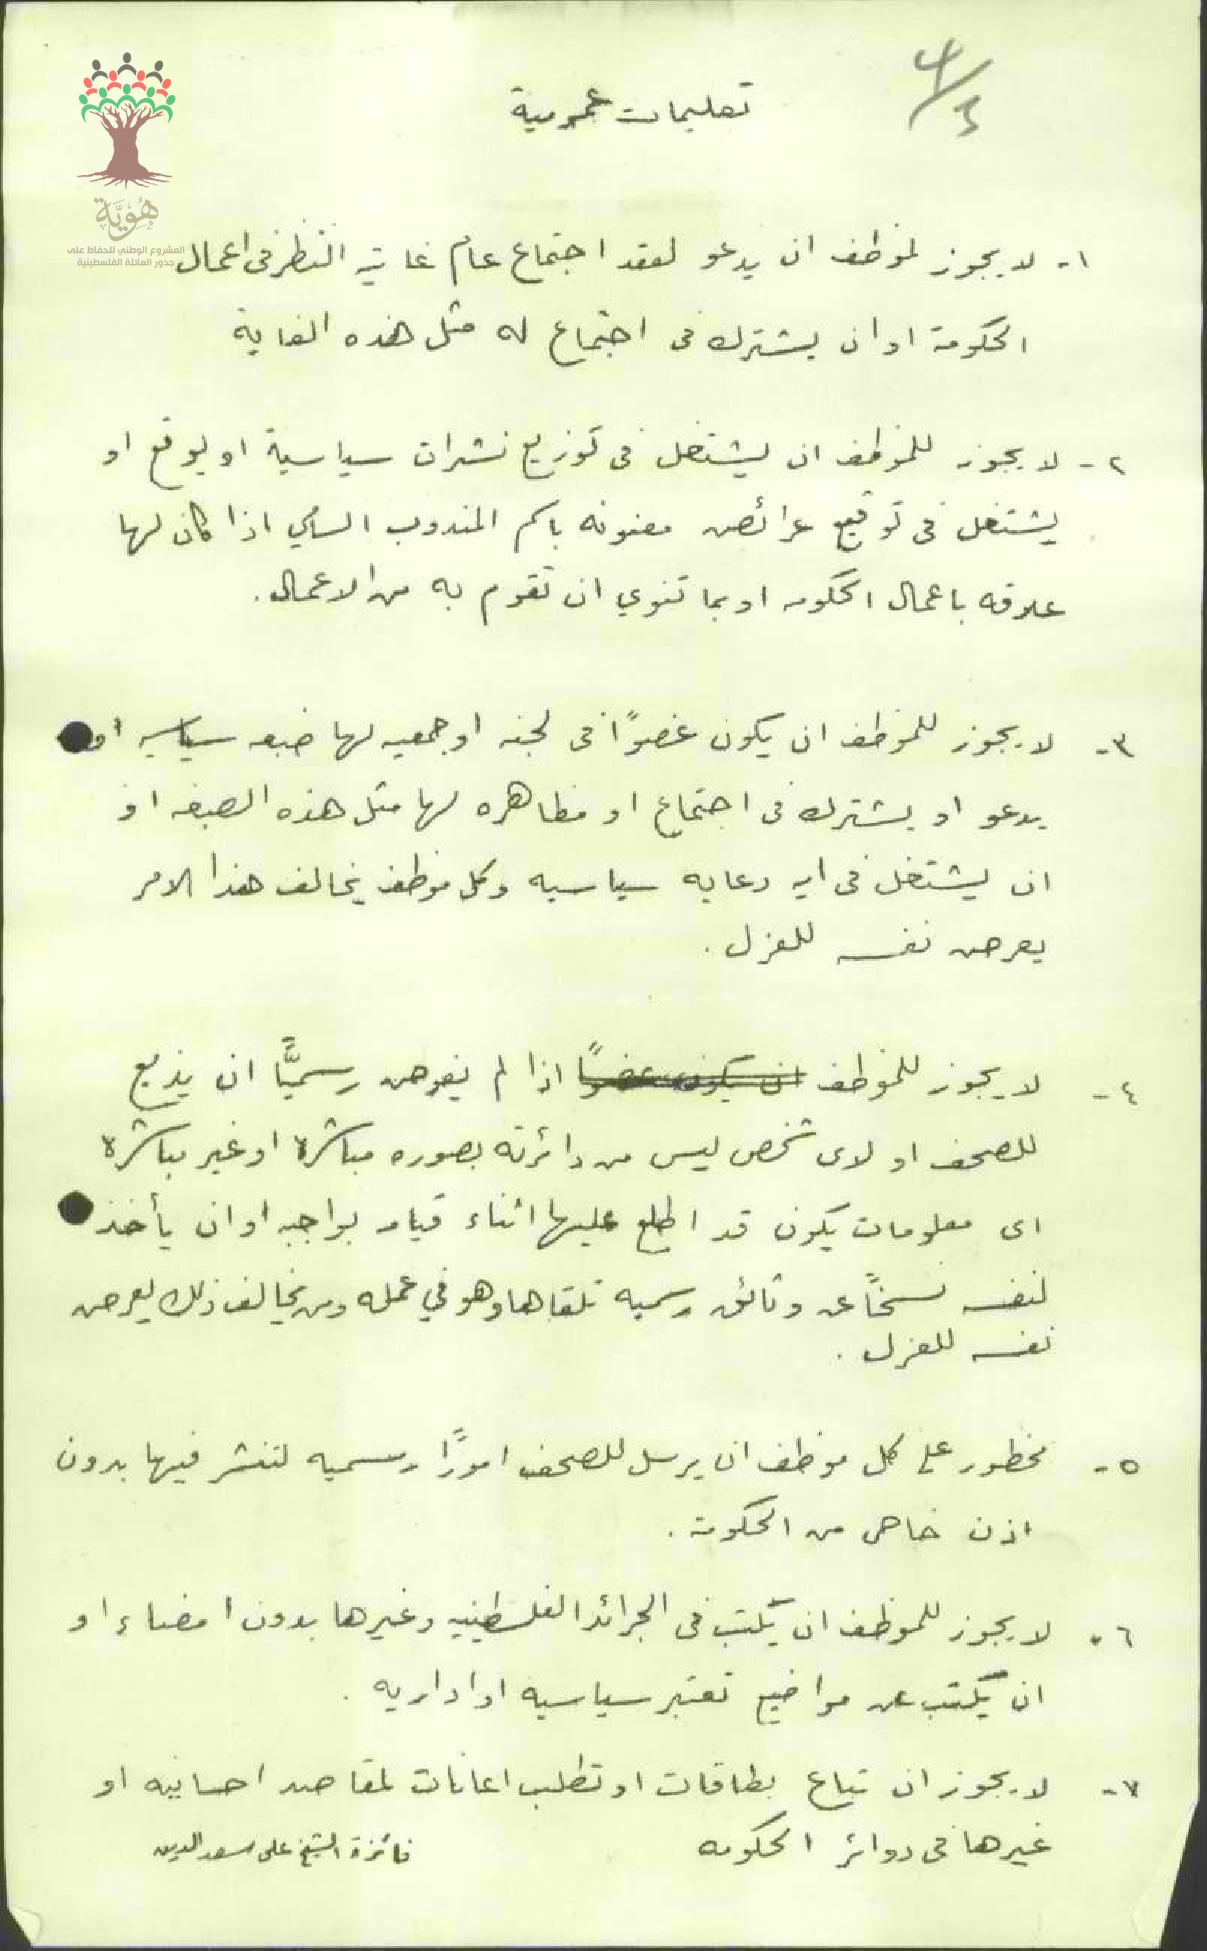 ٤/٥
تعليمات عمومية
هُوِيَّة
المشروع الوطني للحفاظ على
جذور العائلة الفلسطينية
١- لا يجوز لموظف ان يدعو لعقد اجتماع عام غايته النظر في اعمال
الحكومة او ان يشترك في اجتماع له مثل هذه الغاية
٢- لا يجوز للموظف ان يشتغل في توزيع نشرات سياسية او يوقع او
يشتغل في توقيع عرائض معنونه باسم المندوب السامي اذا كان لها
علاقه باعمال الحكومه او بما تنوي ان تقوم به من الاعمال.
٣- لا يجوز للموظف ان يكون عضوًا في لجنه او جمعيه لها صبغه سياسيه او
يدعو او يشترك في اجتماع او مظاهره لها مثل هذه الصبغه او
ان يشتغل في ايه دعايه سياسيه وكل موظف يخالف هذا الامر
يعرض نفسه للعزل.
٤- لا يجوز للموظف ان يكون عضوًا اذا لم يفوض رسميًّا ان يذيع
للصحف او لاى شخص ليس من دائرته بصوره مباشرة او غير مباشرة
اى معلومات يكون قد اطلع عليها اثناء قيامه بواجبه او ان يأخذ
لنفسه نسخًا عن وثائق رسميه تلقاها وهو في عمله ومن يخالف ذلك يعرض
نفسه للعزل.
٥- محظور على كل موظف ان يرسل للصحف امورًا رسميه لتنشر فيها بدون
اذن خاص من الحكومة.
٦- لا يجوز للموظف ان يكتب في الجرائد الفلسطينيه وغيرها بدون امضاء او
ان يكتب عن مواضيع تعتبر سياسيه او اداريه.
٧- لا يجوز ان تباع بطاقات او تطلب اعانات لمقاصد احسانيه او
غيرها في دوائر الحكومه
فائزة الشيخ علي سعد الدين